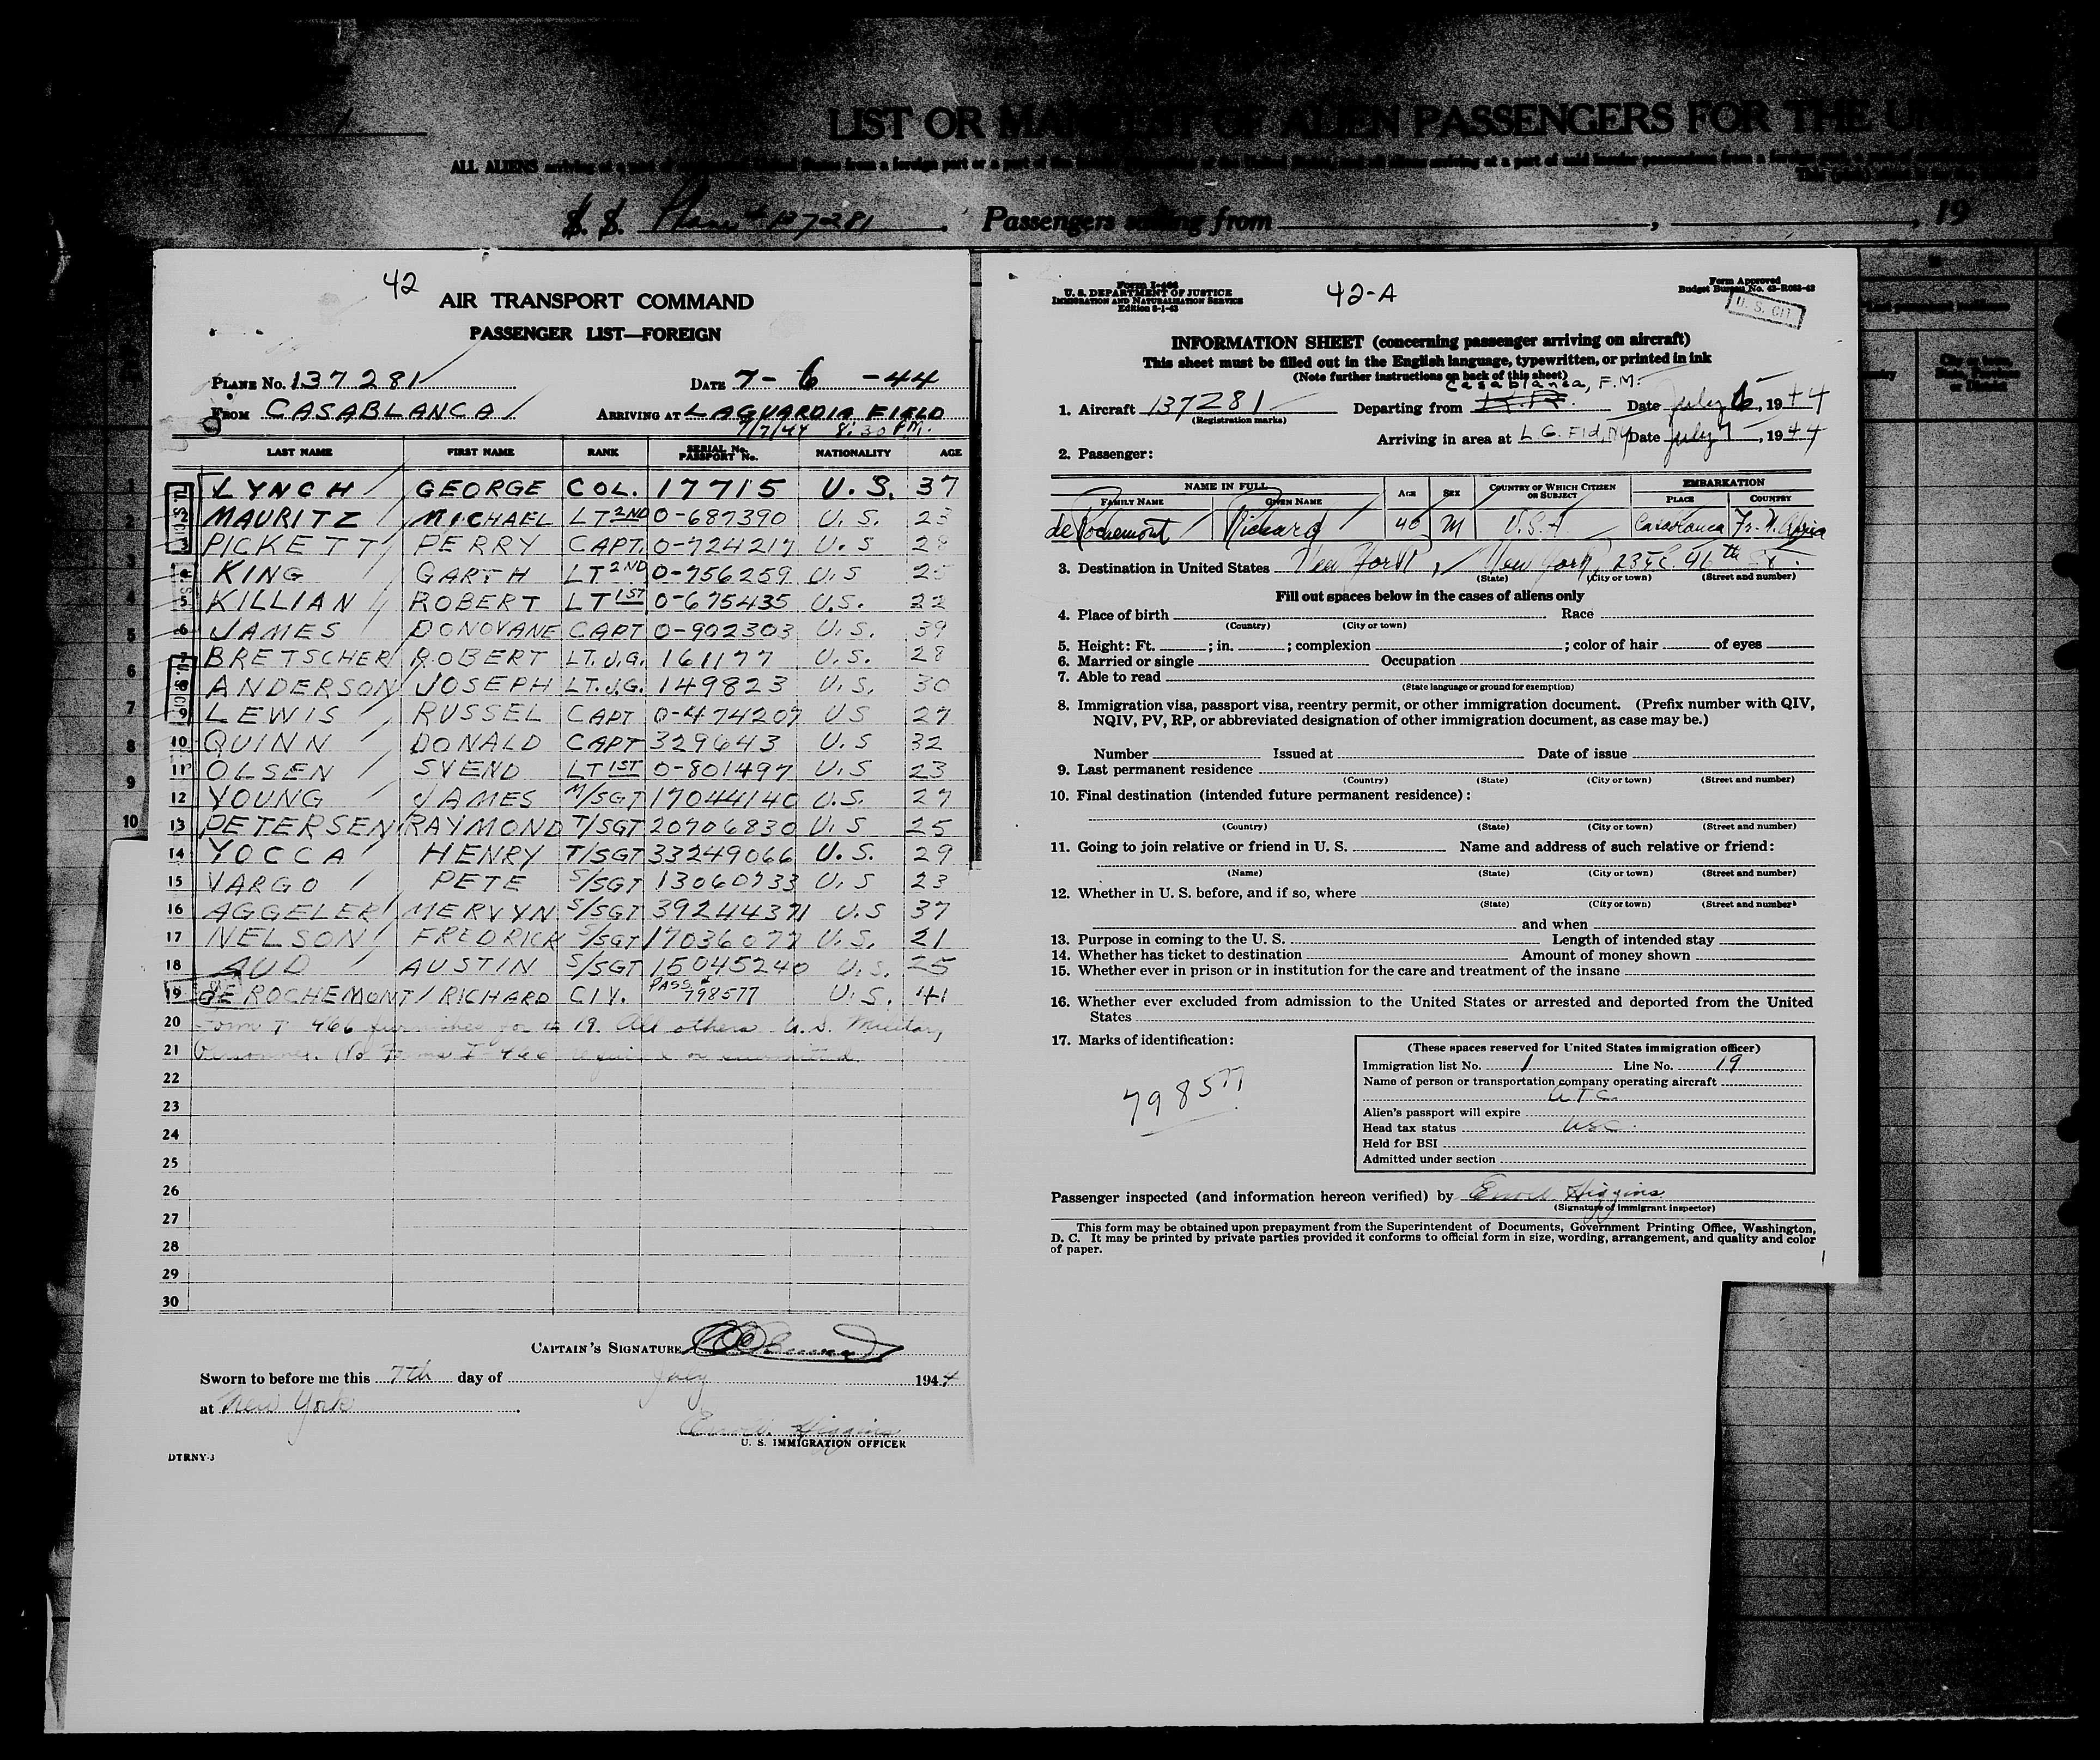 LIST OR MANIFEST OF ALIEN PASSENGERS FOR THE UN
ALL ALIENS arriving at a port of
S. S. Plane # 137281 Passengers sailing from , , 19
42
AIR TRANSPORT COMMAND
PASSENGER LIST—FOREIGN
PLANE No. 137281 DATE 7-6-44
FROM CASABLANCA ARRIVING AT LAGUARDIA FIELD
7/7/44 8:30 P.M.
LAST NAME FIRST NAME RANK SERIAL No. PASSPORT No. NATIONALITY AGE
1 LYNCH GEORGE COL. 17715 U.S. 37
2 MAURITZ MICHAEL LT 2ND 0-687390 U.S. 23
3 PICKETT PERRY CAPT. 0-724217 U.S 28
4 KING GARTH LT 2ND 0-756259 U.S 25
5 KILLIAN ROBERT LT 1ST 0-675435 U.S. 22
6 JAMES DONOVANE CAPT 0-902303 U.S. 39
7 BRETSCHER ROBERT LT. J.G. 161177 U.S. 28
8 ANDERSON JOSEPH LT. J.G. 149823 U.S. 30
9 LEWIS RUSSEL CAPT 0-474207 US 27
10 QUINN DONALD CAPT 329643 U.S 32
11 OLSEN SVEND LT 1ST 0-801497 U.S 23
12 YOUNG JAMES M/SGT 17044140 U.S. 27
13 PETERSEN RAYMOND T/SGT 20706830 U.S 25
14 YOCCA HENRY T/SGT 33249066 U.S. 29
15 VARGO PETE S/SGT 13060733 U.S 23
16 AGGELER MERVYN S/SGT 39244371 U.S 37
17 NELSON FREDRICK S/SGT 17036077 U.S. 21
18 AUD AUSTIN S/SGT 15045240 U.S. 25
19 DE ROCHEMONT RICHARD CIV. PASS # 798577 U.S. 41
20 Form I 466 furnished for # 19. All others U.S. Military
21 Personnel. No Forms I-466 required or submitted.
22
23
24
25
26
27
28
29
30
CAPTAIN'S SIGNATURE
Sworn to before me this 7th day of July 1944
at New York
Higgins
U. S. IMMIGRATION OFFICER
DTRNY-3
Form I-466
U. S. DEPARTMENT OF JUSTICE
IMMIGRATION AND NATURALIZATION SERVICE
Edition 8-1-43
42-A
Form Approved
Budget Bureau No. 43-R083-43
U. S. CIT
INFORMATION SHEET (concerning passenger arriving on aircraft)
This sheet must be filled out in the English language, typewritten, or printed in ink
(Note further instructions on back of this sheet)
Casablanca, F.M.
1. Aircraft 137281 Departing from Date July 6, 1944
(Registration marks)
Arriving in area at L G. Fld, NY Date July 7, 1944
2. Passenger:
NAME IN FULL AGE SEX COUNTRY OF WHICH CITIZEN OR SUBJECT EMBARKATION
FAMILY NAME GIVEN NAME PLACE COUNTRY
de Rochemont Richard 40 M U.S.A. Casablanca Fr. N. Africa
3. Destination in United States New York, New York, 23 E. 46th St.
(State) (City or town) (Street and number)
Fill out spaces below in the cases of aliens only
4. Place of birth Race
(Country) (City or town)
5. Height: Ft. ; in. ; complexion ; color of hair of eyes
6. Married or single Occupation
7. Able to read
(State language or ground for exemption)
8. Immigration visa, passport visa, reentry permit, or other immigration document. (Prefix number with QIV,
NQIV, PV, RP, or abbreviated designation of other immigration document, as case may be.)
Number Issued at Date of issue
9. Last permanent residence
(Country) (State) (City or town) (Street and number)
10. Final destination (intended future permanent residence):
(Country) (State) (City or town) (Street and number)
11. Going to join relative or friend in U. S. Name and address of such relative or friend:
(Name) (State) (City or town) (Street and number)
12. Whether in U. S. before, and if so, where
(State) (City or town) (Street and number)
and when
13. Purpose in coming to the U. S. Length of intended stay
14. Whether has ticket to destination Amount of money shown
15. Whether ever in prison or in institution for the care and treatment of the insane
16. Whether ever excluded from admission to the United States or arrested and deported from the United
States
17. Marks of identification:
798577
(These spaces reserved for United States immigration officer)
Immigration list No. 1 Line No. 19
Name of person or transportation company operating aircraft
ATC
Alien's passport will expire
Head tax status USC
Held for BSI
Admitted under section
Passenger inspected (and information hereon verified) by Higgins
(Signature of immigrant inspector)
This form may be obtained upon prepayment from the Superintendent of Documents, Government Printing Office, Washington,
D. C. It may be printed by private parties provided it conforms to official form in size, wording, arrangement, and quality and color
of paper.